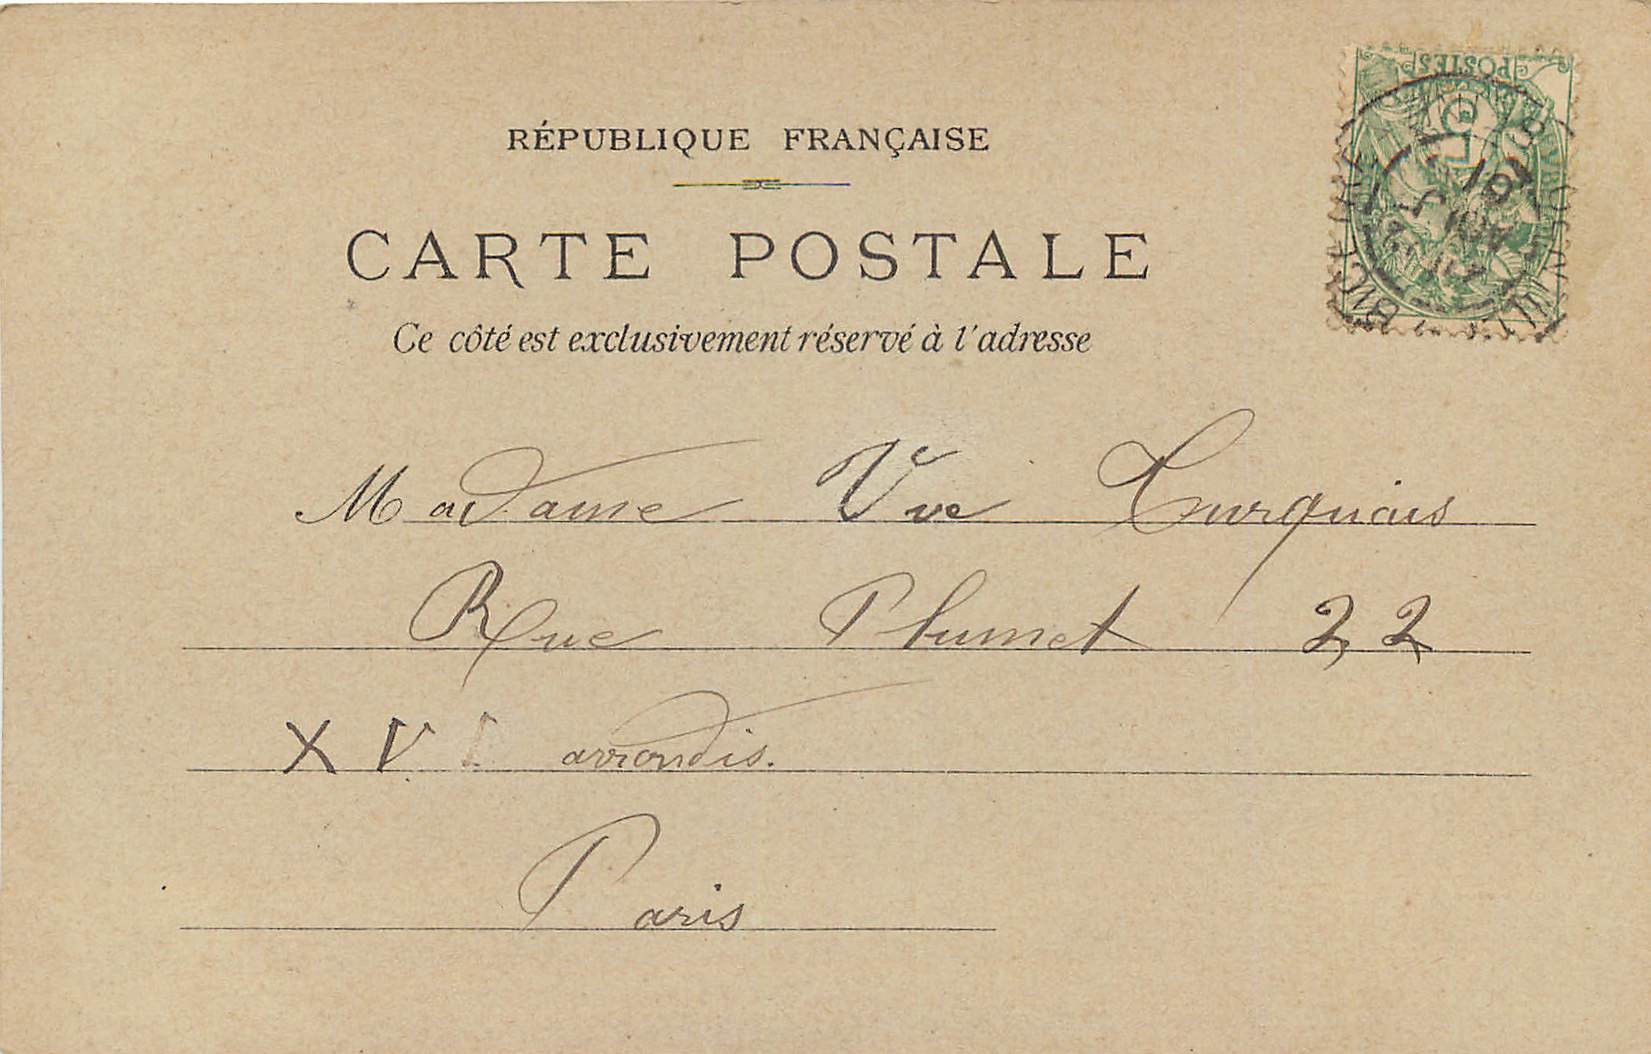 RÉPUBLIQUE FRANÇAISE
CARTE POSTALE
Ce côté est exclusivement réservé à l'adresse
POSTES
BICÊTRE
01
Madame Vve Turquais
Rue Plumet 22
XV arrondis.
Paris